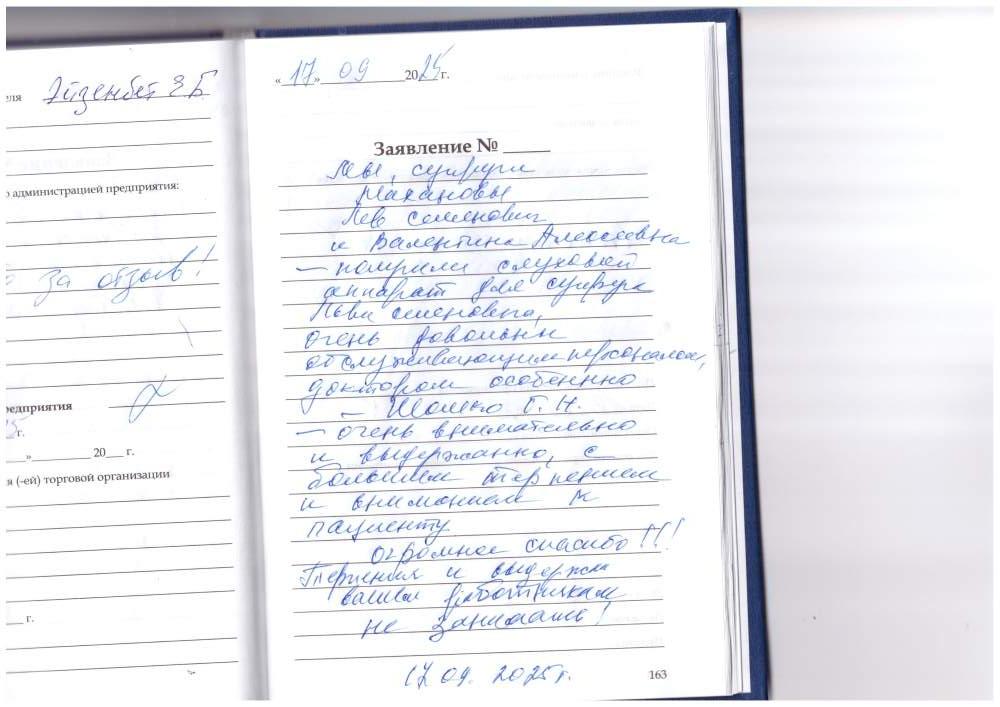 еля Эйзенбет Э Б
о администрацией предприятия:
за отзыв!
редприятия
г.
» 20 г.
я (-ей) торговой организации
г.
« 17 » 09 2025 г.
Заявление №
супруги
Махановы
Лев Семенович
и Валентина Алексеевна
– получили слуховой
аппарат для супруга
Льва Семеновича,
очень довольны
обслуживающим персоналом,
доктором особенно
– Шошко Г. Н.
– очень внимательно
и выдержанно, с
большим терпением
и вниманием к
пациенту
Огромное спасибо!!!
Терпения и
вашим работникам
не занимать!
17 09. 2025 г.
163